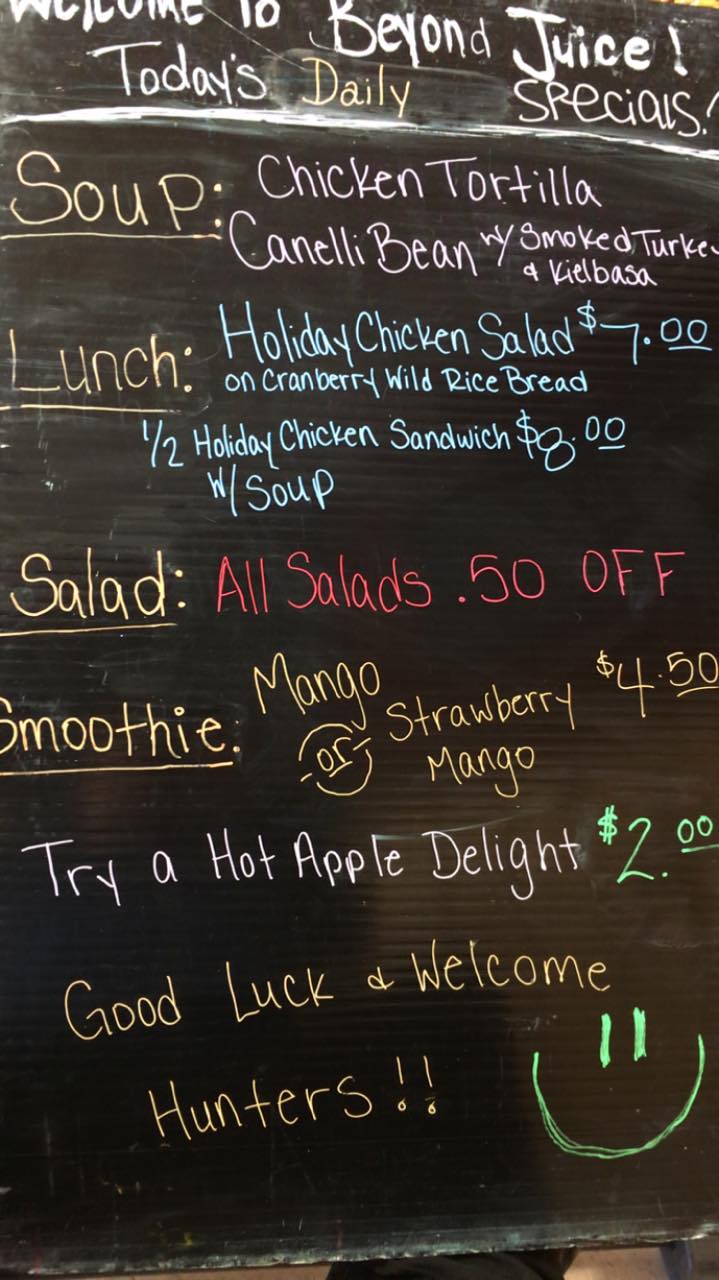 WELCOME TO Beyond Juice!
Today's Daily SPECIALS!
Soup: Chicken Tortilla
Canelli Bean w/ Smoked Turkey
& Kielbasa
Lunch: Holiday Chicken Salad $7.00
on Cranberry Wild Rice Bread
1/2 Holiday Chicken Sandwich $8.00
w/ Soup
Salad: All Salads .50 OFF
Smoothie: Mango
or Strawberry $4.50
Mango
Try a Hot Apple Delight $2.00
Good Luck & Welcome
Hunters!!